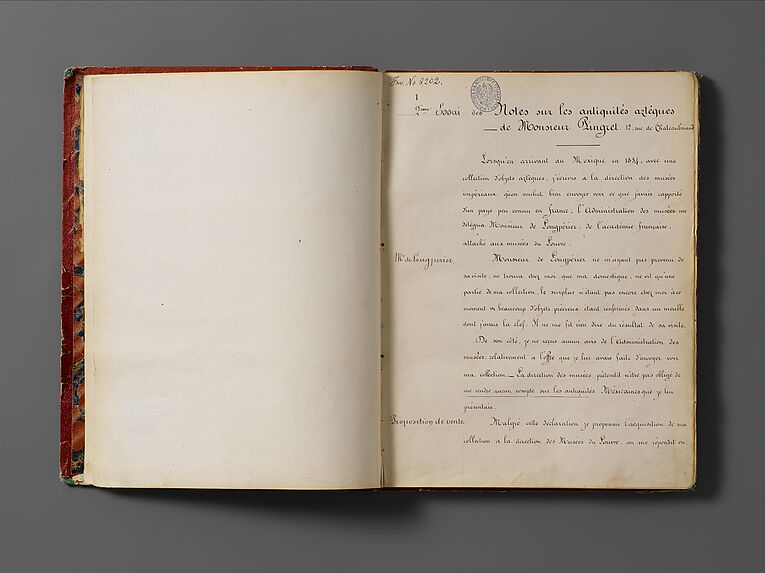 Inv. No. 8202.
1
2ème Essai des Notes sur les antiquités aztèques
— de Monsieur Pingret. 12, rue de Chateaubriand
Lorsqu'en arrivant du Mexique en 1854, avec une
collection d'objets aztèques, j'écrivis à la direction des musées
impériaux qu'on voulut bien envoyer voir ce que j'avais rapporté
d'un pays peu connu en france, l'Administration des musées me
délégua Monsieur de Longpérier, de l'académie française,
attaché aux musées du Louvre.
Mr de Longpérier.
Monsieur de Longpérier ne m'ayant pas prévenu de
sa visite, ne trouva chez moi que ma domestique, ne vit qu'une
partie de ma collection, le surplus n'étant pas encore chez moi à ce
moment & beaucoup d'objets précieux étant renfermés dans un meuble
dont j'avais la clef. Il ne me fit rien dire du résultat de sa visite.
De son côté, je ne reçus aucun avis de l'Administration des
musées, relativement à l'offre que je lui avais faite d'envoyer voir
ma collection. — La direction des musées prétendit n'être pas obligé de
me rendre aucun compte sur les antiquités Méxicaines que je lui
présentais.
Proposition de vente.
Malgré cette déclaration je proposai l'acquisition de ma
collection à la direction des Musées du Louvre, on me répondit en